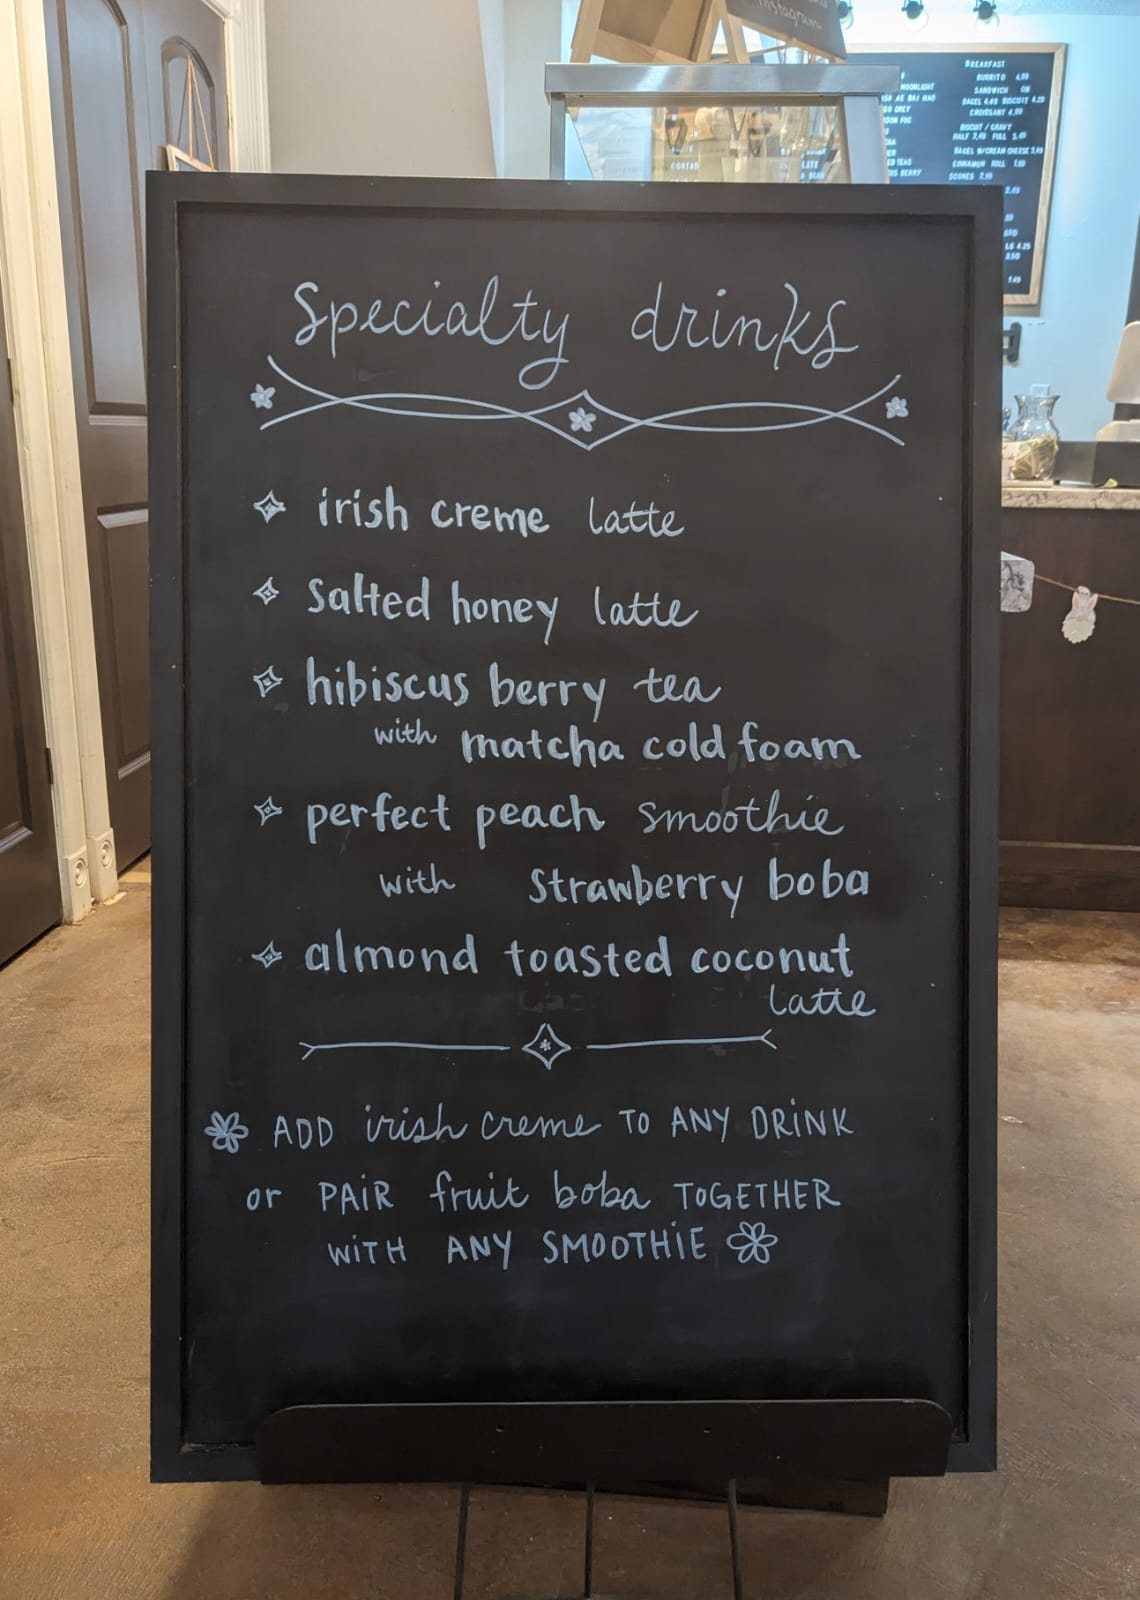 Instagram
BREAKFAST
BURRITO 4.99
SANDWICH ON
BAGEL 4.49 BISCUIT 4.29
CROISSANT 4.99
BISCUIT / GRAVY
HALF 3.49 FULL 5.49
BAGEL W/CREAM CHEESE 3.49
CINNAMON ROLL
SCONES 2.99
MOONLIGHT
BERRY
Specialty drinks
irish creme latte
salted honey latte
hibiscus berry tea
with matcha cold foam
perfect peach smoothie
with strawberry boba
almond toasted coconut
latte
ADD irish creme TO ANY DRINK
or PAIR fruit boba TOGETHER
WITH ANY SMOOTHIE